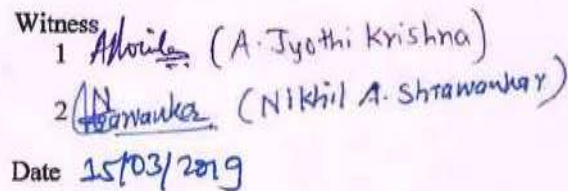 Witness
1 (A. Jyothi Krishna)
2 (Nikhil A. Shrawankar)
Date 15/03/2019